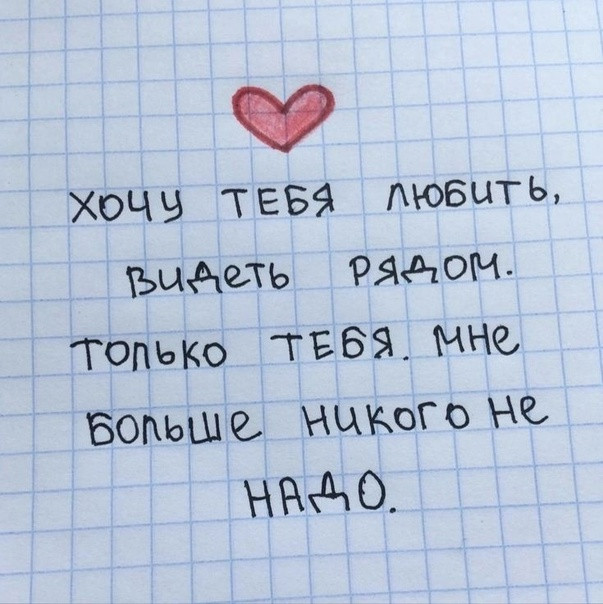 ХОЧУ ТЕБЯ ЛЮБИТЬ,
ВИДЕТЬ РЯДОМ.
ТОЛЬКО ТЕБЯ. МНЕ
БОЛЬШЕ НИКОГО НЕ
НАДО.